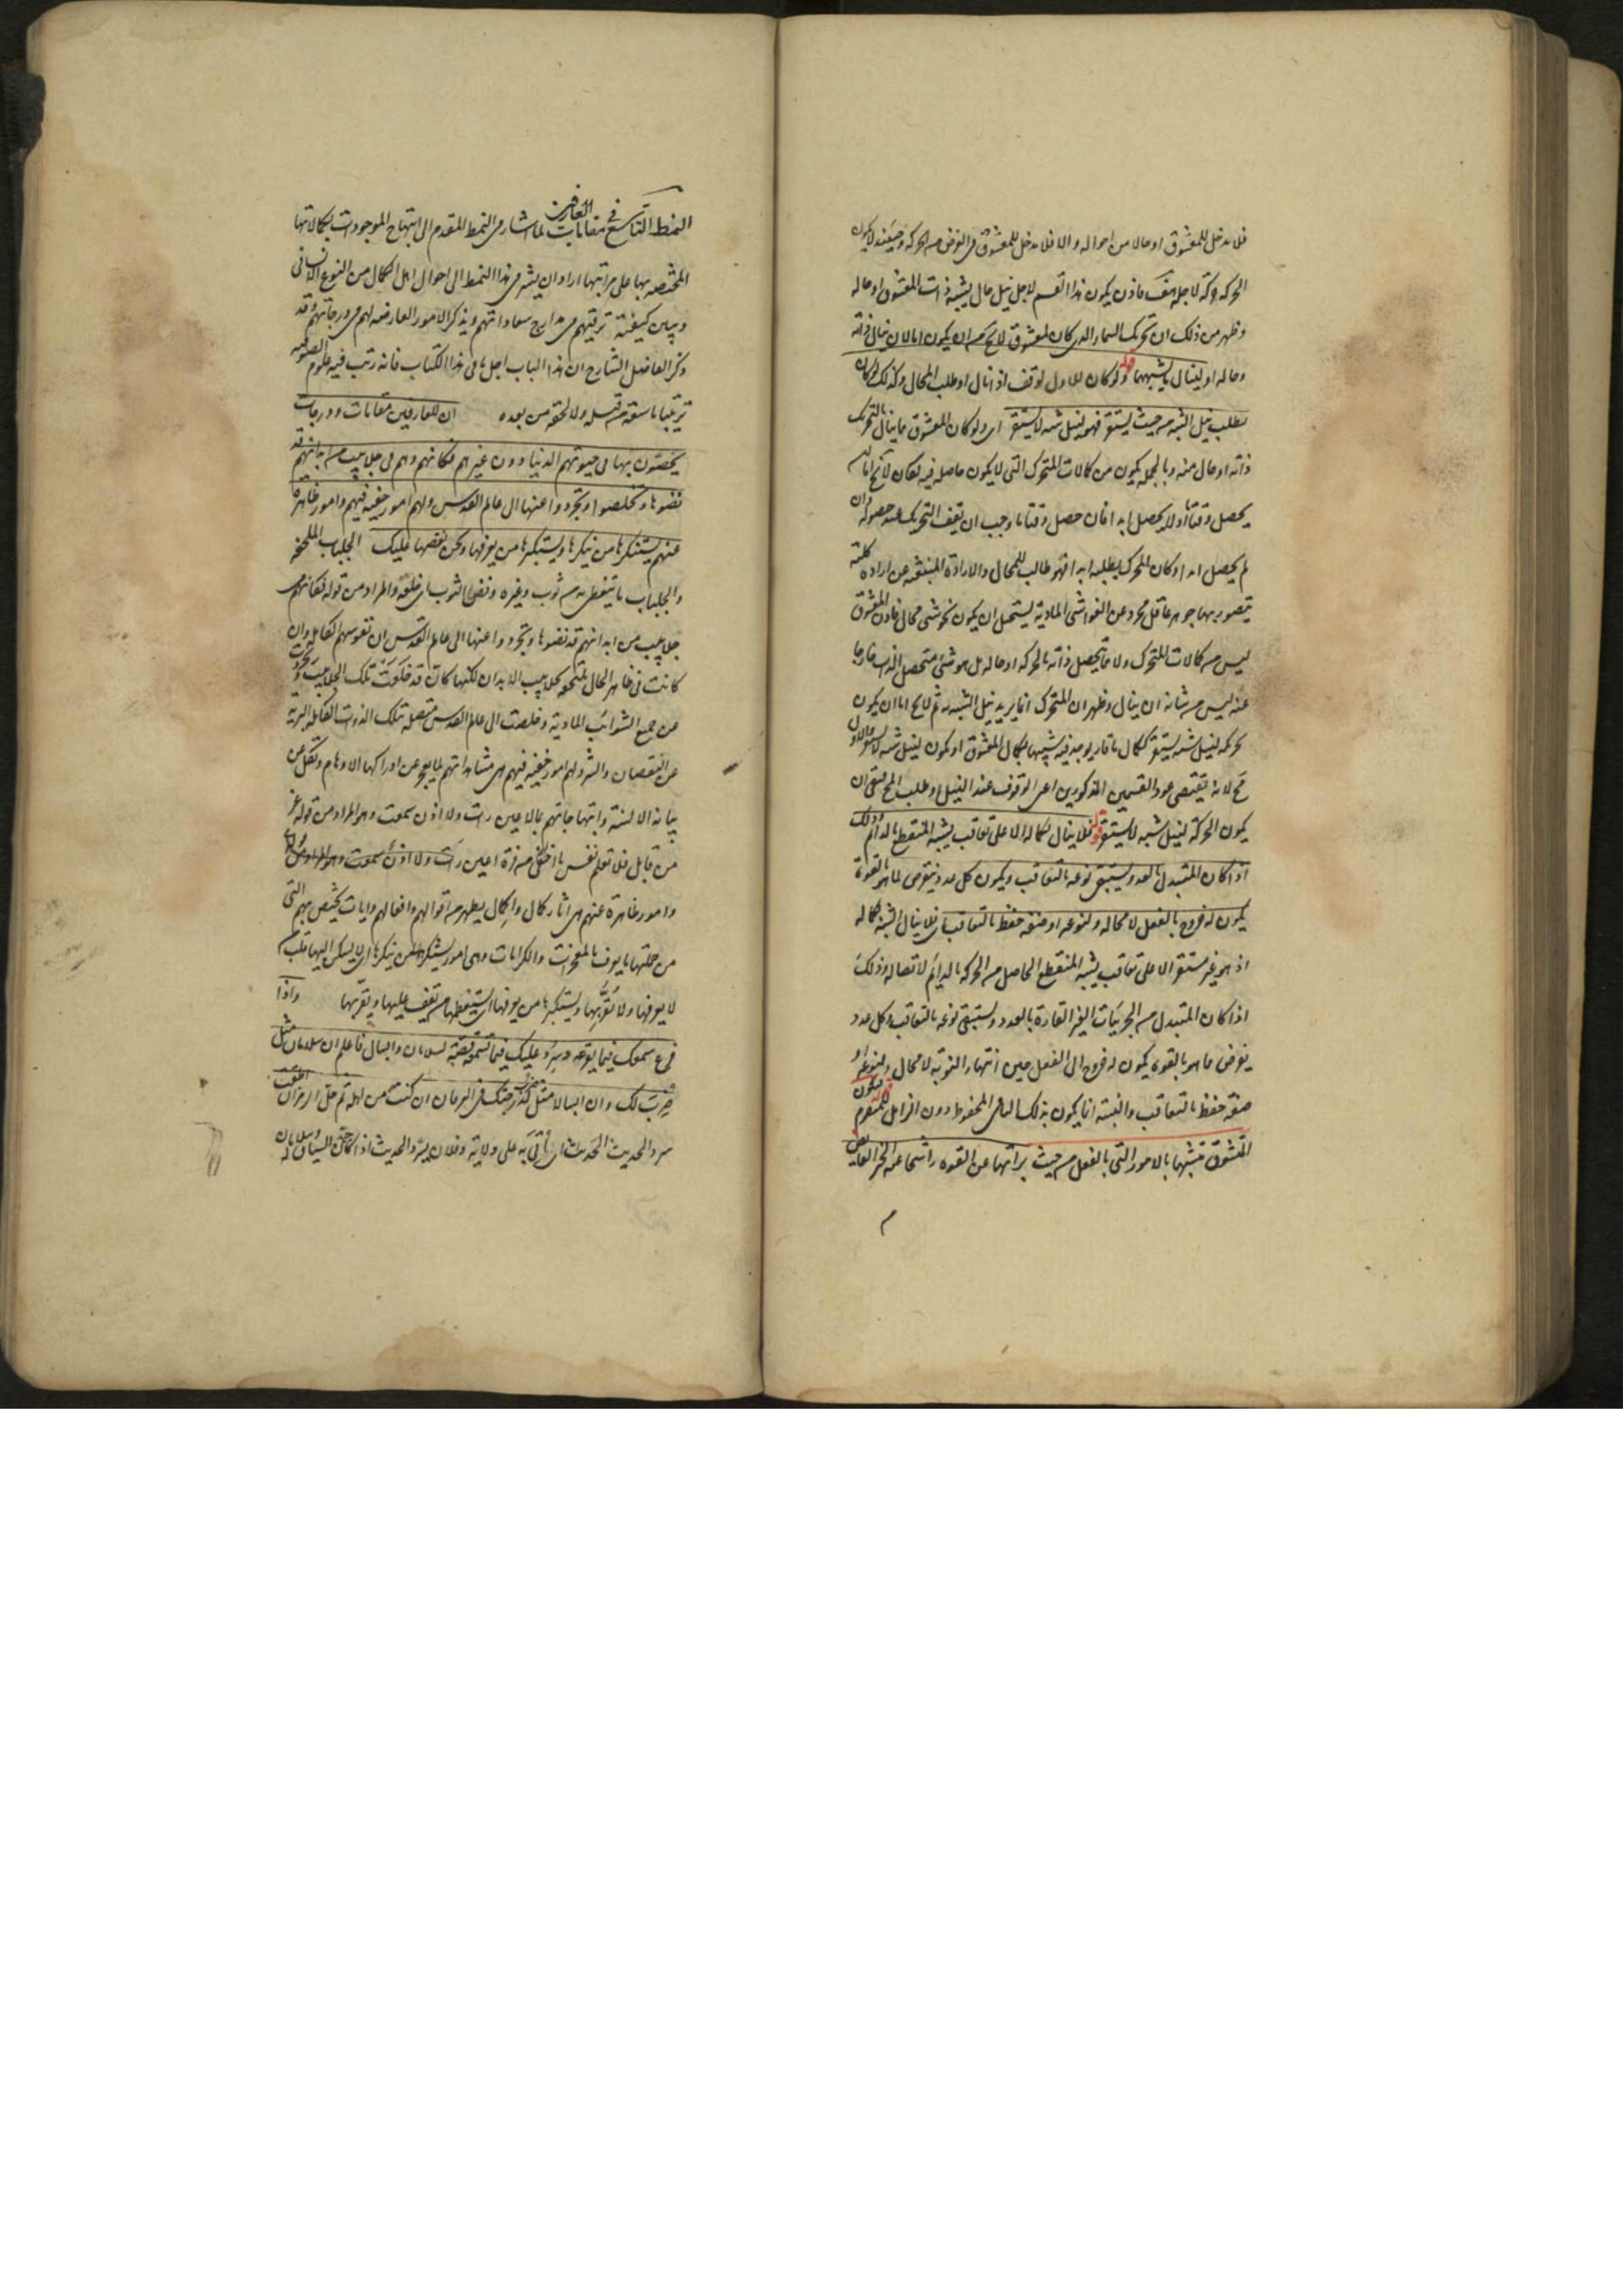 فلا مدخل للمعشوق او حالا من احواله والا فلا مدخل للمعشوق فى الغرض من الحركة وحينئذ لا يكون
الحركة حركة لاجله هف فاذن يكون هذا القسم لاجل نيل حال يشبه ذات المعشوق او حاله
وظهر من ذلك ان تحريك السماء الذى كان لمعشوق لايخ من ان يكون اما لان ينال ذاته
وحاله او لينال ما يشبههما قوله ولو كان للاول لوقف اذا نال او طلب المحال وكذلك لو كان
يطلب نيل الشبه من حيث يستقر فهو لنيل شبه لا يستقر اى ولو كان المعشوق ما ينال بالتحريك
ذاته او حال منه وبالجملة يكون من كمالات المتحرك التى لا يكون حاصله فيه لكان لا يخ اما ان
يحصل وقتا ما او لا يحصل ابدا فان حصل وقتا ما وجب ان يقف التحريك عند حصوله وان
لم يحصل ابدا وكان المحرك يطلبه ابدا فهو طالب للمحال والارادة المنبعثة عن ارادة كلية
يتصور بها جوهر عاقل مجرد عن الغواشى المادية يستحيل ان يكون نحو شئ محال فاذن المعشوق
ليس من كمالات المتحرك ولا مما يتحصل ذاته بالحركة او حاله بل هو شئ متحصل الذات خارجا
عنه ليس من شانه ان ينال وظهر ان المتحرك انما يريد نيل الشبه به ثم لايخ اما ان يكون
تحركه لنيل شبه يستقر ككمال ما قار يوجد فيه شبيها بكمال المعشوق او يكون لنيل شبه لا يستقر والاول
مح لانه يقتضى عود القسمين المذكورين اعنى الوقوف عند النيل او طلب المح فبقى ان
يكون الحركة لنيل شبه لا يستقر قوله فلا ينال بكماله الا على تعاقب يشبه المنقطع بالدائم وذلك
اذا كان المتبدل بالعدد يستبقى نوعه بالتعاقب ويكون كل عدد يفرض لما هو بالقوة
يكون له خروج بالفعل لا محالة ولنوعه او صنفه حفظ بالتعاقب اى فلا ينال الشبه بكماله
اذ هو غير مستقر الا على تعاقب يشبه المنقطع الحاصل من الحركة بالدائم لاتصاله وذلك
اذا كان المتبدل من الجزئيات الغير القارة بالعدد ويستبقى نوعه بالتعاقب وكل عدد
يفرض ما هو بالقوة يكون له خروج الى الفعل حين انتهاء النوبة لا محال ولنوعه او
صنفه حفظ بالتعاقب والشبه انما يكون بذلك الباقى المحفوظ دون الزائل المنصرم قوله فيكون
المتشوق متشبها بالامور التى بالفعل من حيث براتها عن القوة راشحا عنه الخير الفايض
النمط التاسع فى مقامات العارفين لما اشار فى النمط المقدم الى ابتهاج الموجودات بكمالاتها
المختصه بها على مراتبها اراد ان يشير فى هذا النمط الى احوال اهل الكمال من النوع الانسانى
ويبين كيفية ترقيهم فى مدارج سعاداتهم ويذكر الامور العارضه لهم فى درجاتهم وقد
ذكر الفاضل الشارح ان هذا الباب اجل ما فى هذا الكتاب فانه رتب فيه علوم الصوفيه
ترتيبا ما سبقه من قبله ولا لحقه من بعده ان للعارفين مقامات ودرجات
يخصون بها فى حيوتهم الدنيا دون غيرهم فكانهم وهم فى جلابيب من ابدانهم قد
نضوها وتخلصوا وتجردوا عنها الى عالم القدس ولهم امور خفيه فيهم وامور ظاهرة
عنهم يستنكرها من ينكرها ويستكبرها من يعرفها ونحن نقصها عليك الجلباب الملحفة
والجلباب ما يتغطى به من ثوب وغيره ونضى الثوب اى خلعه والمراد من قوله فكانهم
جلابيب من ابدانهم قد نضوها وتجردوا عنها الى عالم القدس ان نفوسهم الكاملة وان
كانت فى ظاهر الحال ملتحفه بجلابيب الابدان لكنها كان قد خلعت تلك الجلابيب وتجردت
عن جميع الشوائب المادية وخلصت الى عالم القدس متصلة بتلك الذوات الكاملة البرية
عن النقصان والشر ولهم امور خفيه فيهم هى مشاهداتهم لما يعجز عن ادراكها الاوهام وتكل عن
بيانه الالسنة وابتهاجاتهم بما لا عين رات ولا اذن سمعت وهو المراد من قوله عز
من قايل فلا تعلم نفس ما اخفى لهم من قرة اعين رات ولا اذن سمعت وهو المراد من قوله
وامور ظاهرة عنهم هى اثار كمال واكمال يظهر من اقوالهم وافعالهم وايات يختص بهم التى
من جملتها ما يعرف بالمعجزات والكرامات وهى امور يستنكرها من ينكرها اى لا يسكن اليها قلب
لا يعرفها ولا تقربها ويستكبرها من يعرفها اى يستعظمها من يقف عليها ويقربها واذا
قرع سمعك فيما يقرعه وسرد عليك فيما تسمعه قصة لسلامان وابسال فاعلم ان سلامان مثل
ضرب لك وان ابسالا مثل ضرب لدرجتك فى العرفان ان كنت من اهله ثم حل الرمز ان اطقت
سرد الحديث الحديث اى ياتى به على ولائه وفلان يسرد الحديث اذا كان جيد السياق له وسلامان